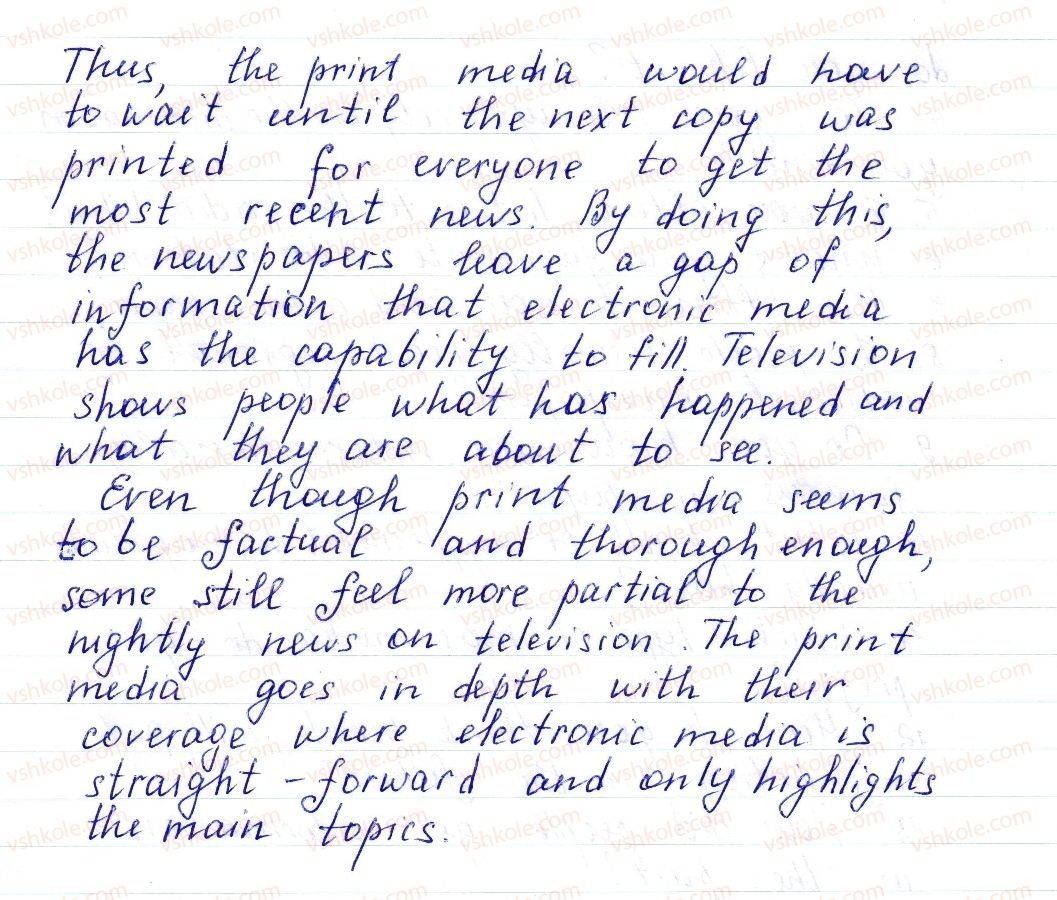 Thus, the print media would have
to wait until the next copy was
printed for everyone to get the
most recent news. By doing this,
the newspapers leave a gap of
information that electronic media
has the capability to fill. Television
shows people what has happened and
what they are about to see.
Even though print media seems
to be factual and thorough enough,
some still feel more partial to the
nightly news on television. The print
media goes in depth with their
coverage where electronic media is
straight-forward and only highlights
the main topics.